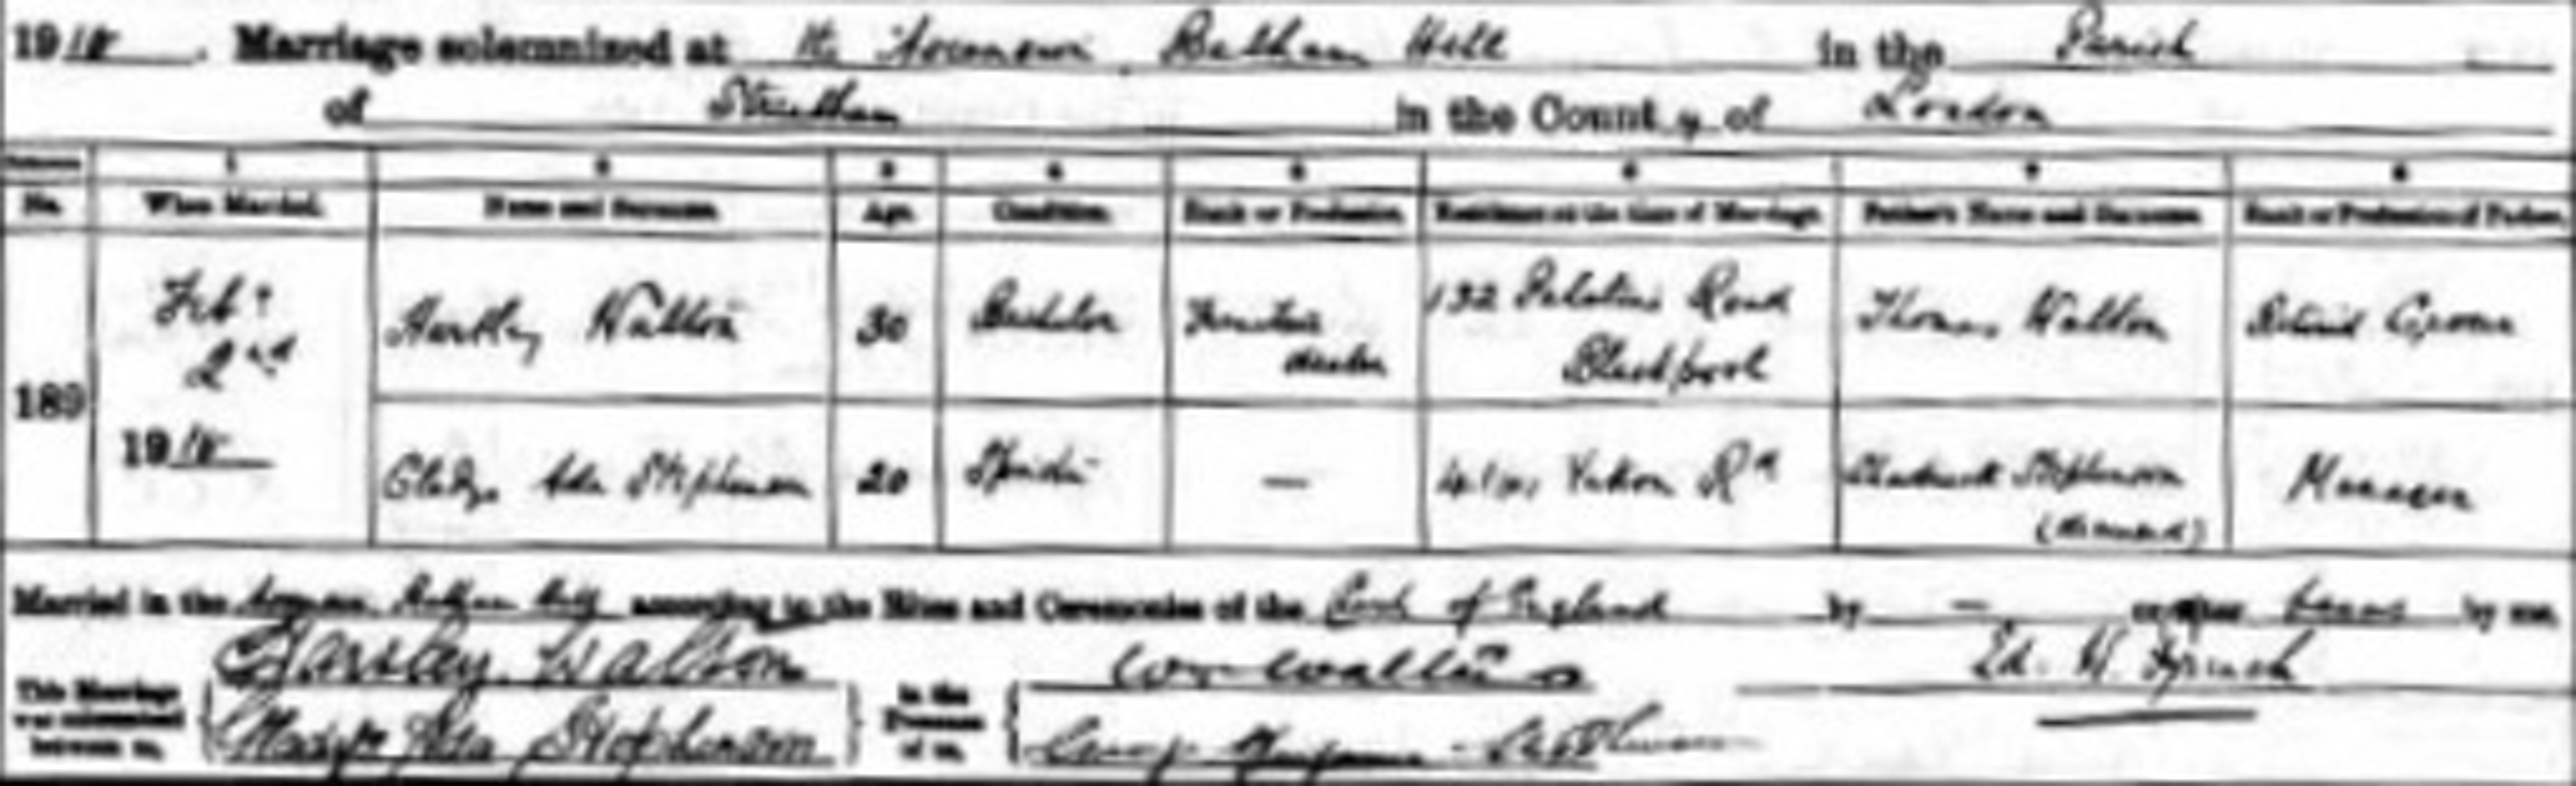 1918. Marriage solemnized at The Ascension, Balham Hill in the Parish
of Streatham in the County of London
1 2 3 4 5 6 7 8
No. When Married. Name and Surname. Age. Condition. Rank or Profession. Residence at the time of Marriage. Father's Name and Surname. Rank or Profession of Father.
189 Feby 2nd 1918 Hartley Walton 30 Bachelor Furniture dealer 132 Palatine Road Blackpool Thomas Walton Retired Grocer
Gladys Ada Stephenson 20 Spinster — Yukon Rd Stephenson (deceased) Manager
Married in the Ascension Balham Hill according to the Rites and Ceremonies of the Church of England by — or after banns by me,
This Marriage was solemnized between us, Hartley Walton Gladys Ada Stephenson In the Presence of us, Stephenson Ed. H.